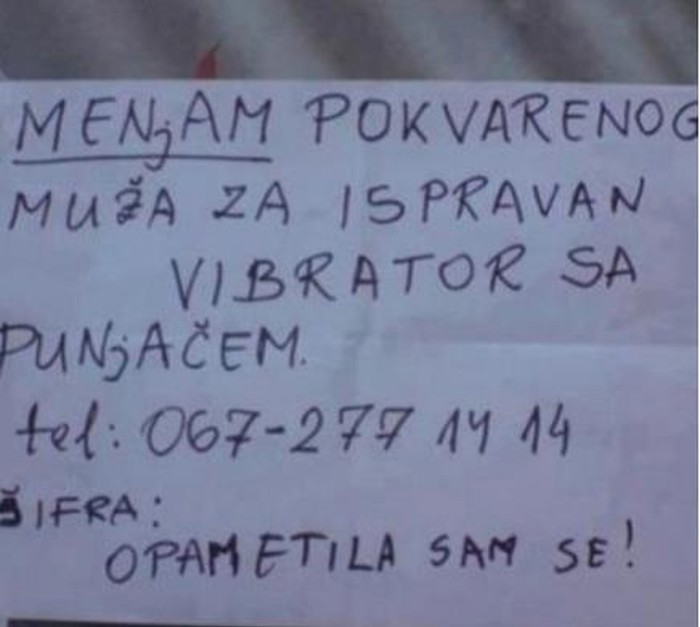 MENjAM POKVARENOG
MUŽA ZA ISPRAVAN
VIBRATOR SA
PUNjAČEM.
tel: 067-277 14 14
ŠIFRA:
OPAMETILA SAM SE!